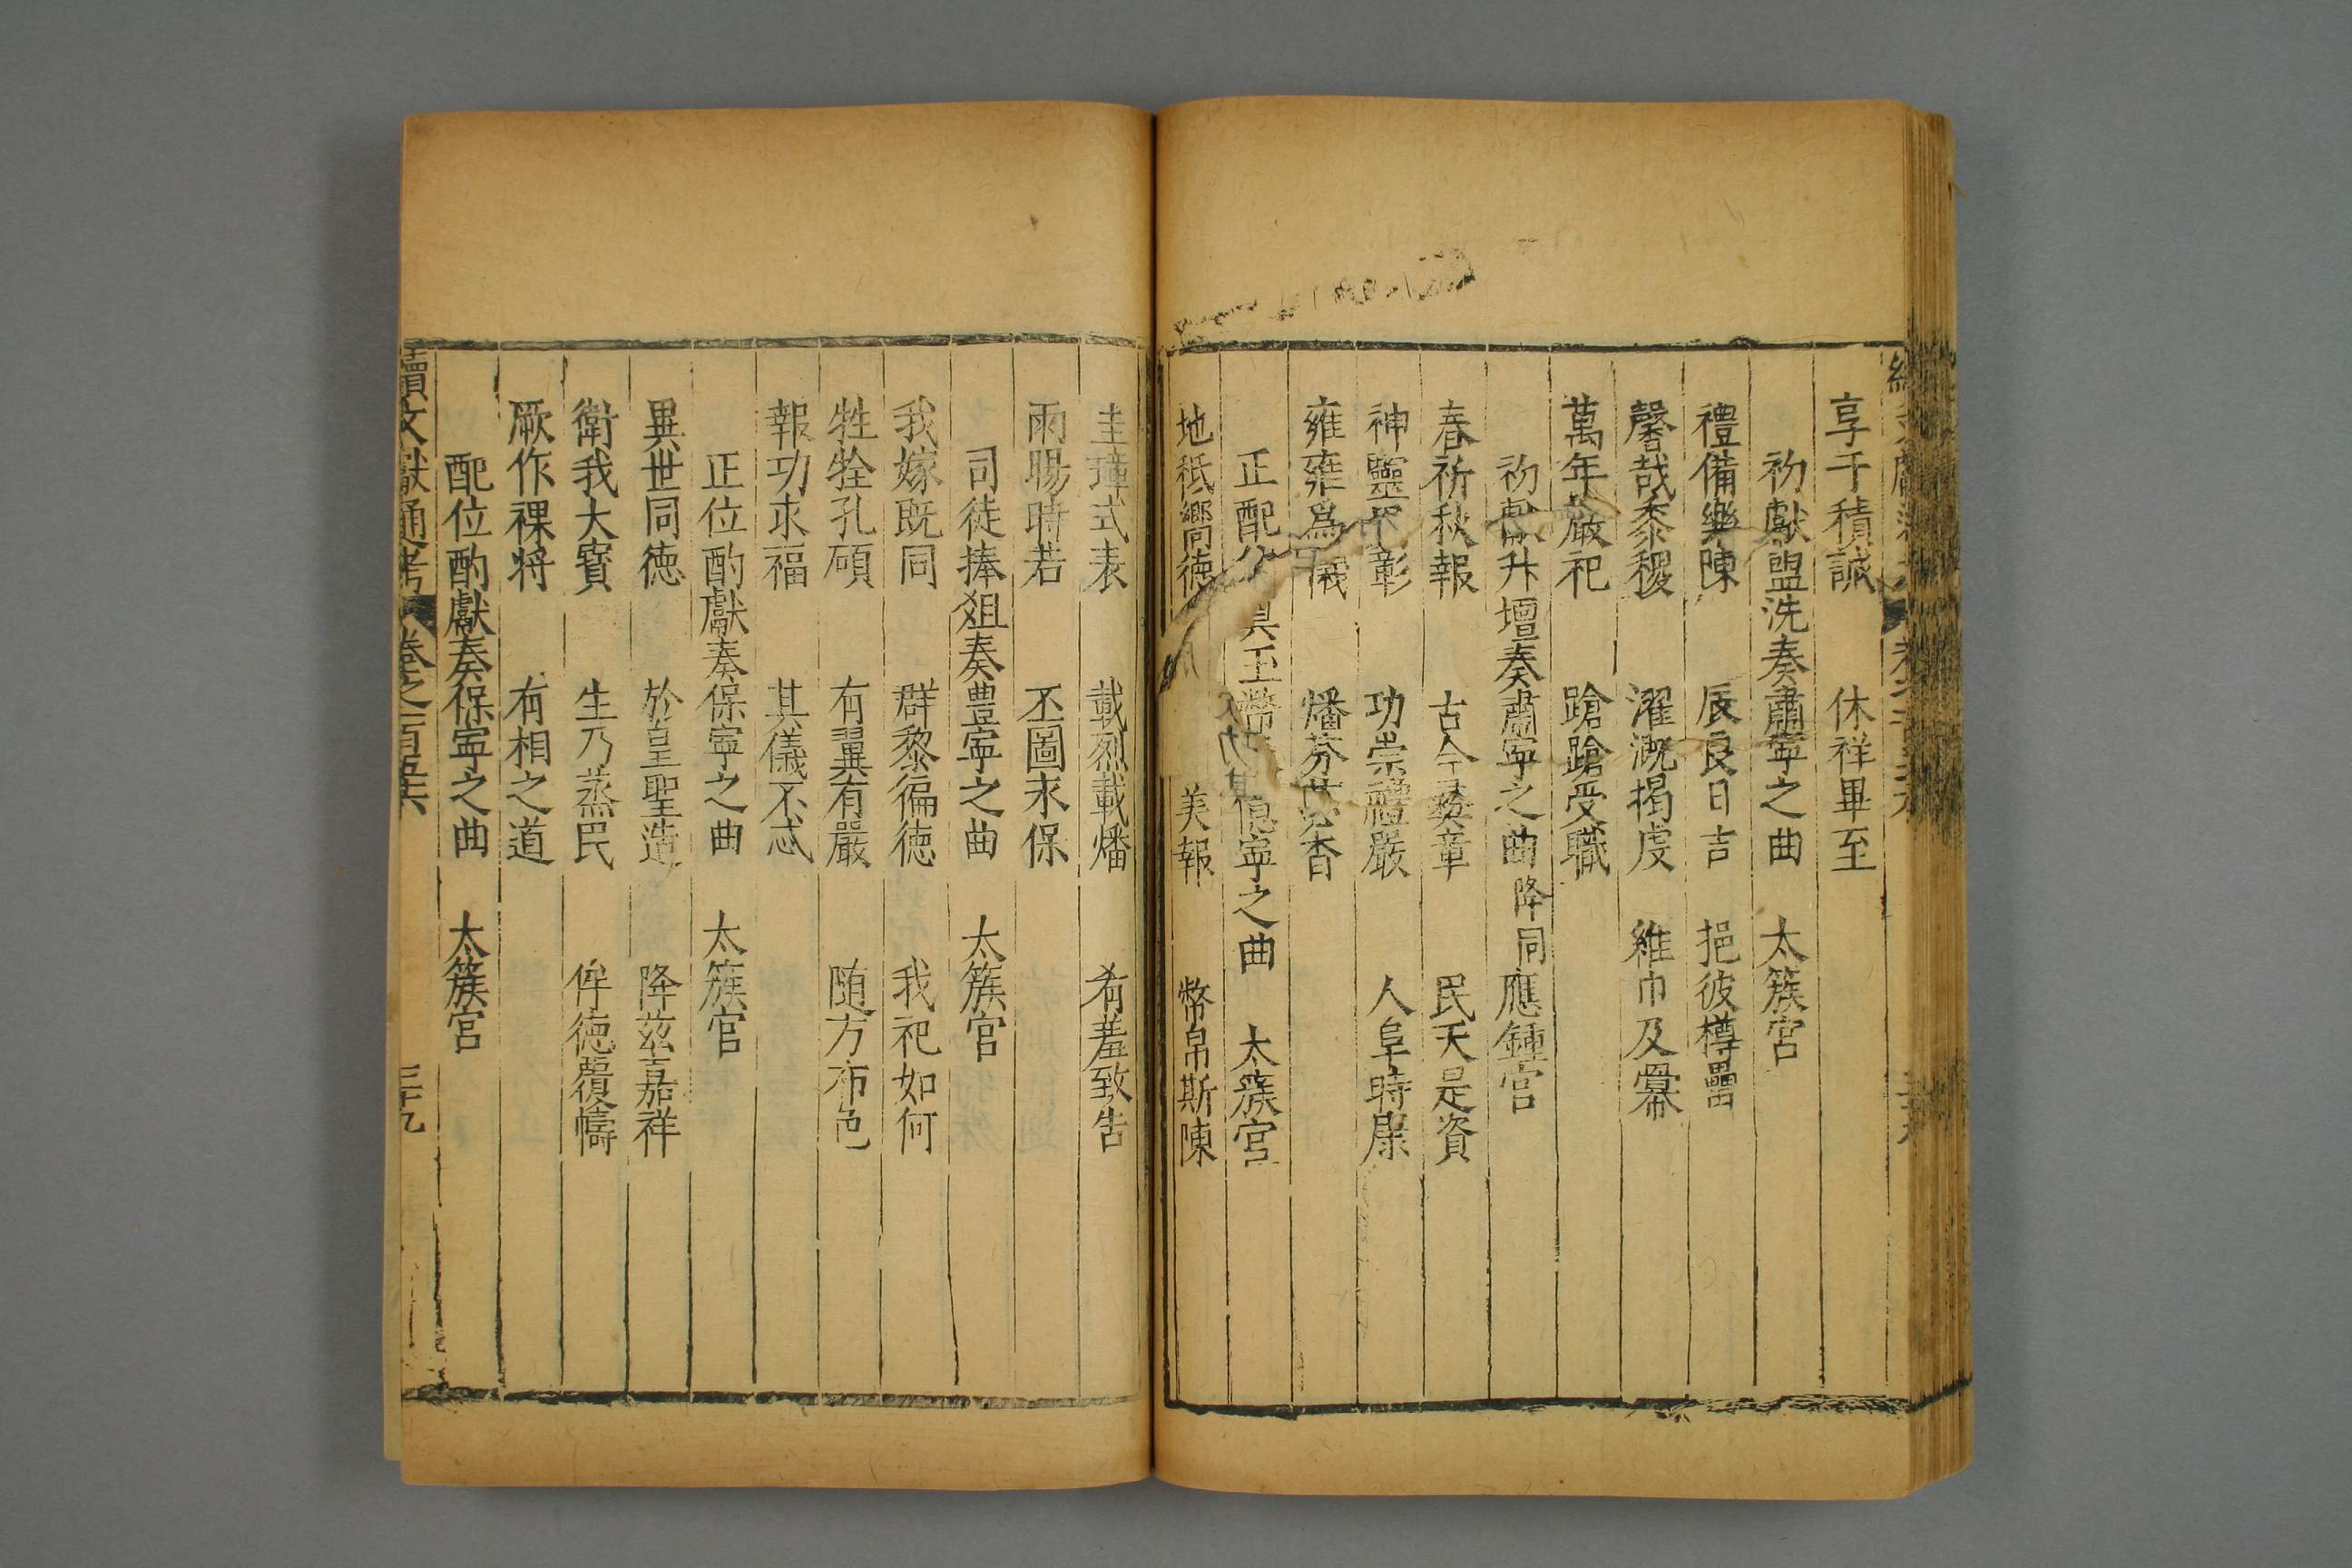 享于積誠　休祥畢至
初獻盥洗奏肅寧之曲　太簇宮
禮備樂陳　辰良日吉　挹彼樽罍
馨哉黍稷　濯溉揭虔　維巾及冪
萬年嚴祀　蹌蹌受職
初獻升壇奏肅寧之曲降同應鍾宮
春祈秋報　古今彞章　民天是資
神靈丕彰　功崇禮嚴　人阜時康
雍雍爲儀　燔芬苾香
正配位奠玉幣　億寧之曲　太簇宮
地祗嚮德　美報　幣帛斯陳
圭璋式表　載烈載燔　肴羞致告
雨暘時若　丕圖永保
司徒捧俎奏豊寧之曲　太簇宮
我嫁既同　群黎徧德　我祀如何
牲牷孔碩　有翼有嚴　隨方布色
報功求福　其儀不忒
正位酌獻奏保寧之曲　太簇宮
異世同德　於皇聖造　降茲嘉祥
衛我大寶　生乃蒸民　侔德覆幬
厥作祼將　有相之道
配位酌獻奏保寧之曲　太簇宮
續文獻通考　卷之一百五十六　三十九